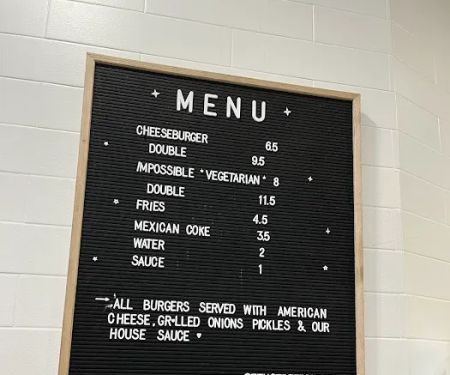 MENU
CHEESEBURGER 6.5
DOUBLE 9.5
IMPOSSIBLE "VEGETARIAN" 8
DOUBLE 11.5
FRIES 4.5
MEXICAN COKE 3.5
WATER 2
SAUCE 1
→ALL BURGERS SERVED WITH AMERICAN
CHEESE, GRILLED ONIONS PICKLES & OUR
HOUSE SAUCE ♥